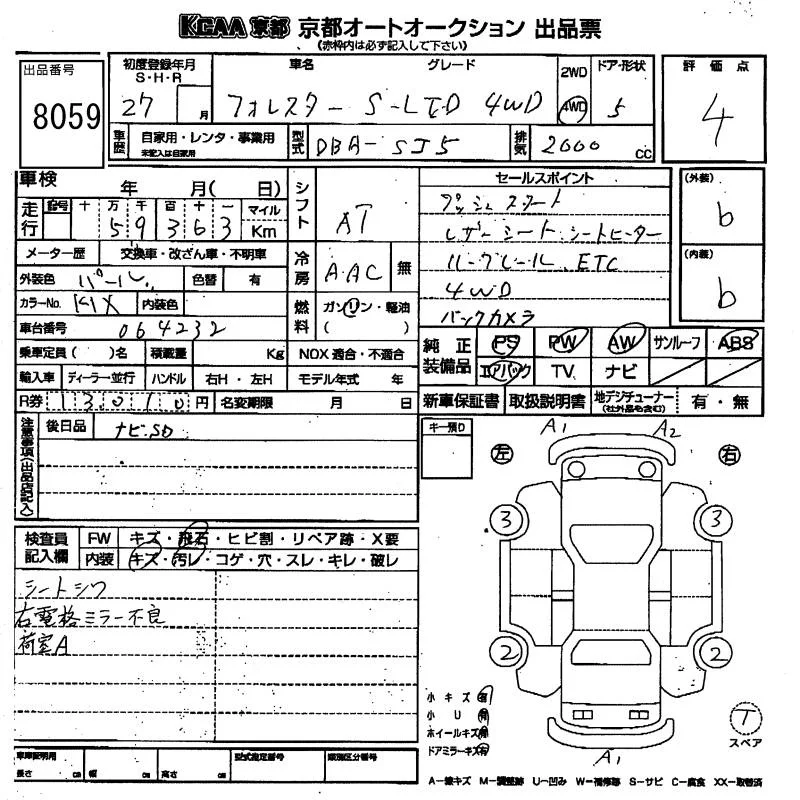 KCAA 京都 京都オートオークション 出品票
《赤枠内は必ず記入して下さい》
出品番号
8059
初度登録年月
S・H・R
27 月
車名
フォレスター S-LTD 4WD
グレード
2WD
4WD
ドア・形状
5
評価点
4
車歴
自家用・レンタ・事業用
未記入は自家用
型式
DBA-SJ5
排気
2000 cc
車検 年 月( 日)
走行
十 万 千 百 十 一 マイル
5 9 3 6 3 Km
シフト
AT
メーター歴 交換車・改ざん車・不明車
外装色 パール 色替 有
カラーNo. K1X 内装色
車台番号 064232
冷房
A・AC 無
燃料
ガソリン・軽油
( )
乗車定員( )名 積載量 Kg NOX適合・不適合
輸入車 ディーラー・並行 ハンドル 右H・左H モデル年式 年
R券 13010円 名変期限 月 日
セールスポイント
プッシュスタート
レザーシート、シートヒーター
ルーフレール、ETC
4WD
バックカメラ
(外装)
b
(内装)
b
純正装備品
PS PW AW サンルーフ ABS
エアバック TV ナビ
新車保証書 取扱説明書 地デジチューナー 有・無
(社外品も含む)
注意事項(出品店記入)
後日品 ナビSD
キー預り
検査員記入欄
FW キズ・飛石・ヒビ割・リペア跡・X要
内装 キズ・汚レ・コゲ・穴・スレ・キレ・破レ
シートシワ
右電格ミラー不良
荷室A
A1 A2
左 右
3 3
2 2
A1
小キズ有
小U有
ホイールキズ有
ドアミラーキズ有
T
スペア
車庫証明用
長さ cm 幅 cm 高さ cm
型式指定番号
類別区分番号
A-線キズ M-調整跡 U-凹み W-補修跡 S-サビ C-腐食 XX-取替済